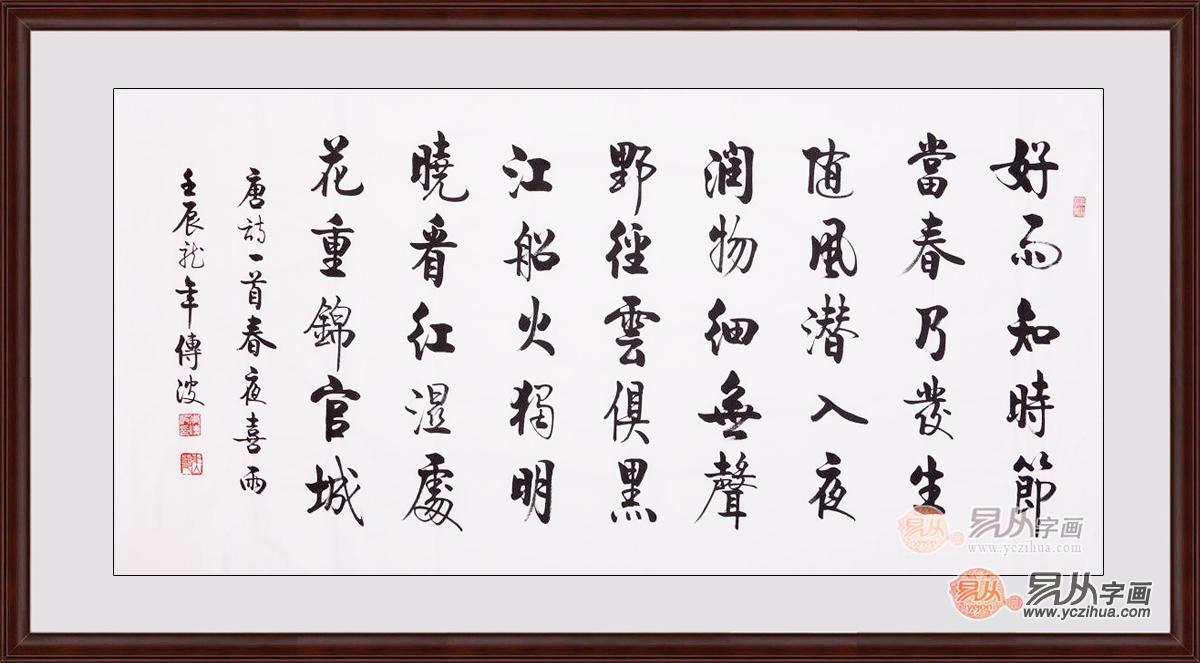 好雨知時節
當春乃發生
随風潜入夜
潤物细無聲
野徑雲俱黑
江船火獨明
曉看红湿處
花重錦官城
唐詩一首春夜喜雨
壬辰龙年傳波
易从字画
www.yczihua.com
易从字画
yejon
www.yczihua.com